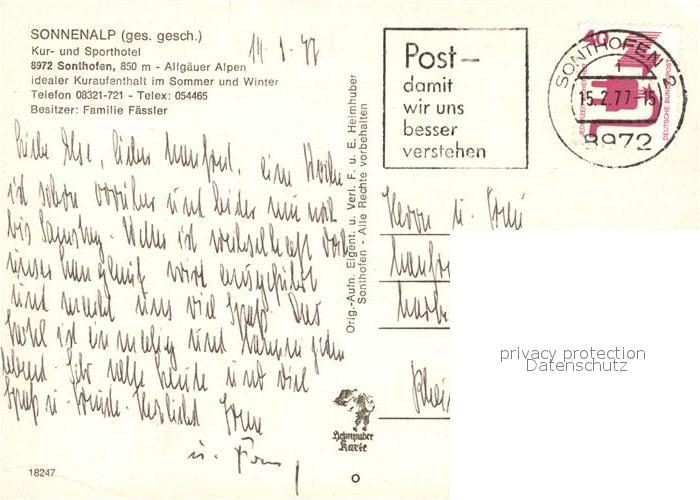 SONNENALP (ges. gesch.)
Kur- und Sporthotel
8972 Sonthofen, 850 m - Allgäuer Alpen
idealer Kuraufenthalt im Sommer und Winter
Telefon 08321-721 - Telex: 054465
Besitzer: Familie Fässler
Liebe Else, lieber Manfred, eine Woche
ist schon vorüber und leider nur noch
bis Samstag. Wetter ist wechselhaft doch
unser Langlauf wird ausgeführt
und macht uns viel Spaß. Das
Hotel ist einmalig und tanzen jeden
Abend. Sehr nette Leute und viel
Spaß u. Freude. Herzlichst
u.
18247
Orig.-Aufn. Eigent. u. Verl. F. u. E. Heimhuber
Sonthofen - Alle Rechte vorbehalten
Heimhuber
Karte
Post-
damit
wir uns
besser
verstehen
40
DEUTSCHE BUNDESPOST
JEDERZEIT SICHERHEIT
SONTHOFEN 2
1
15.2.77-15
8972
Herrn u. Frau
privacy protection
Datenschutz